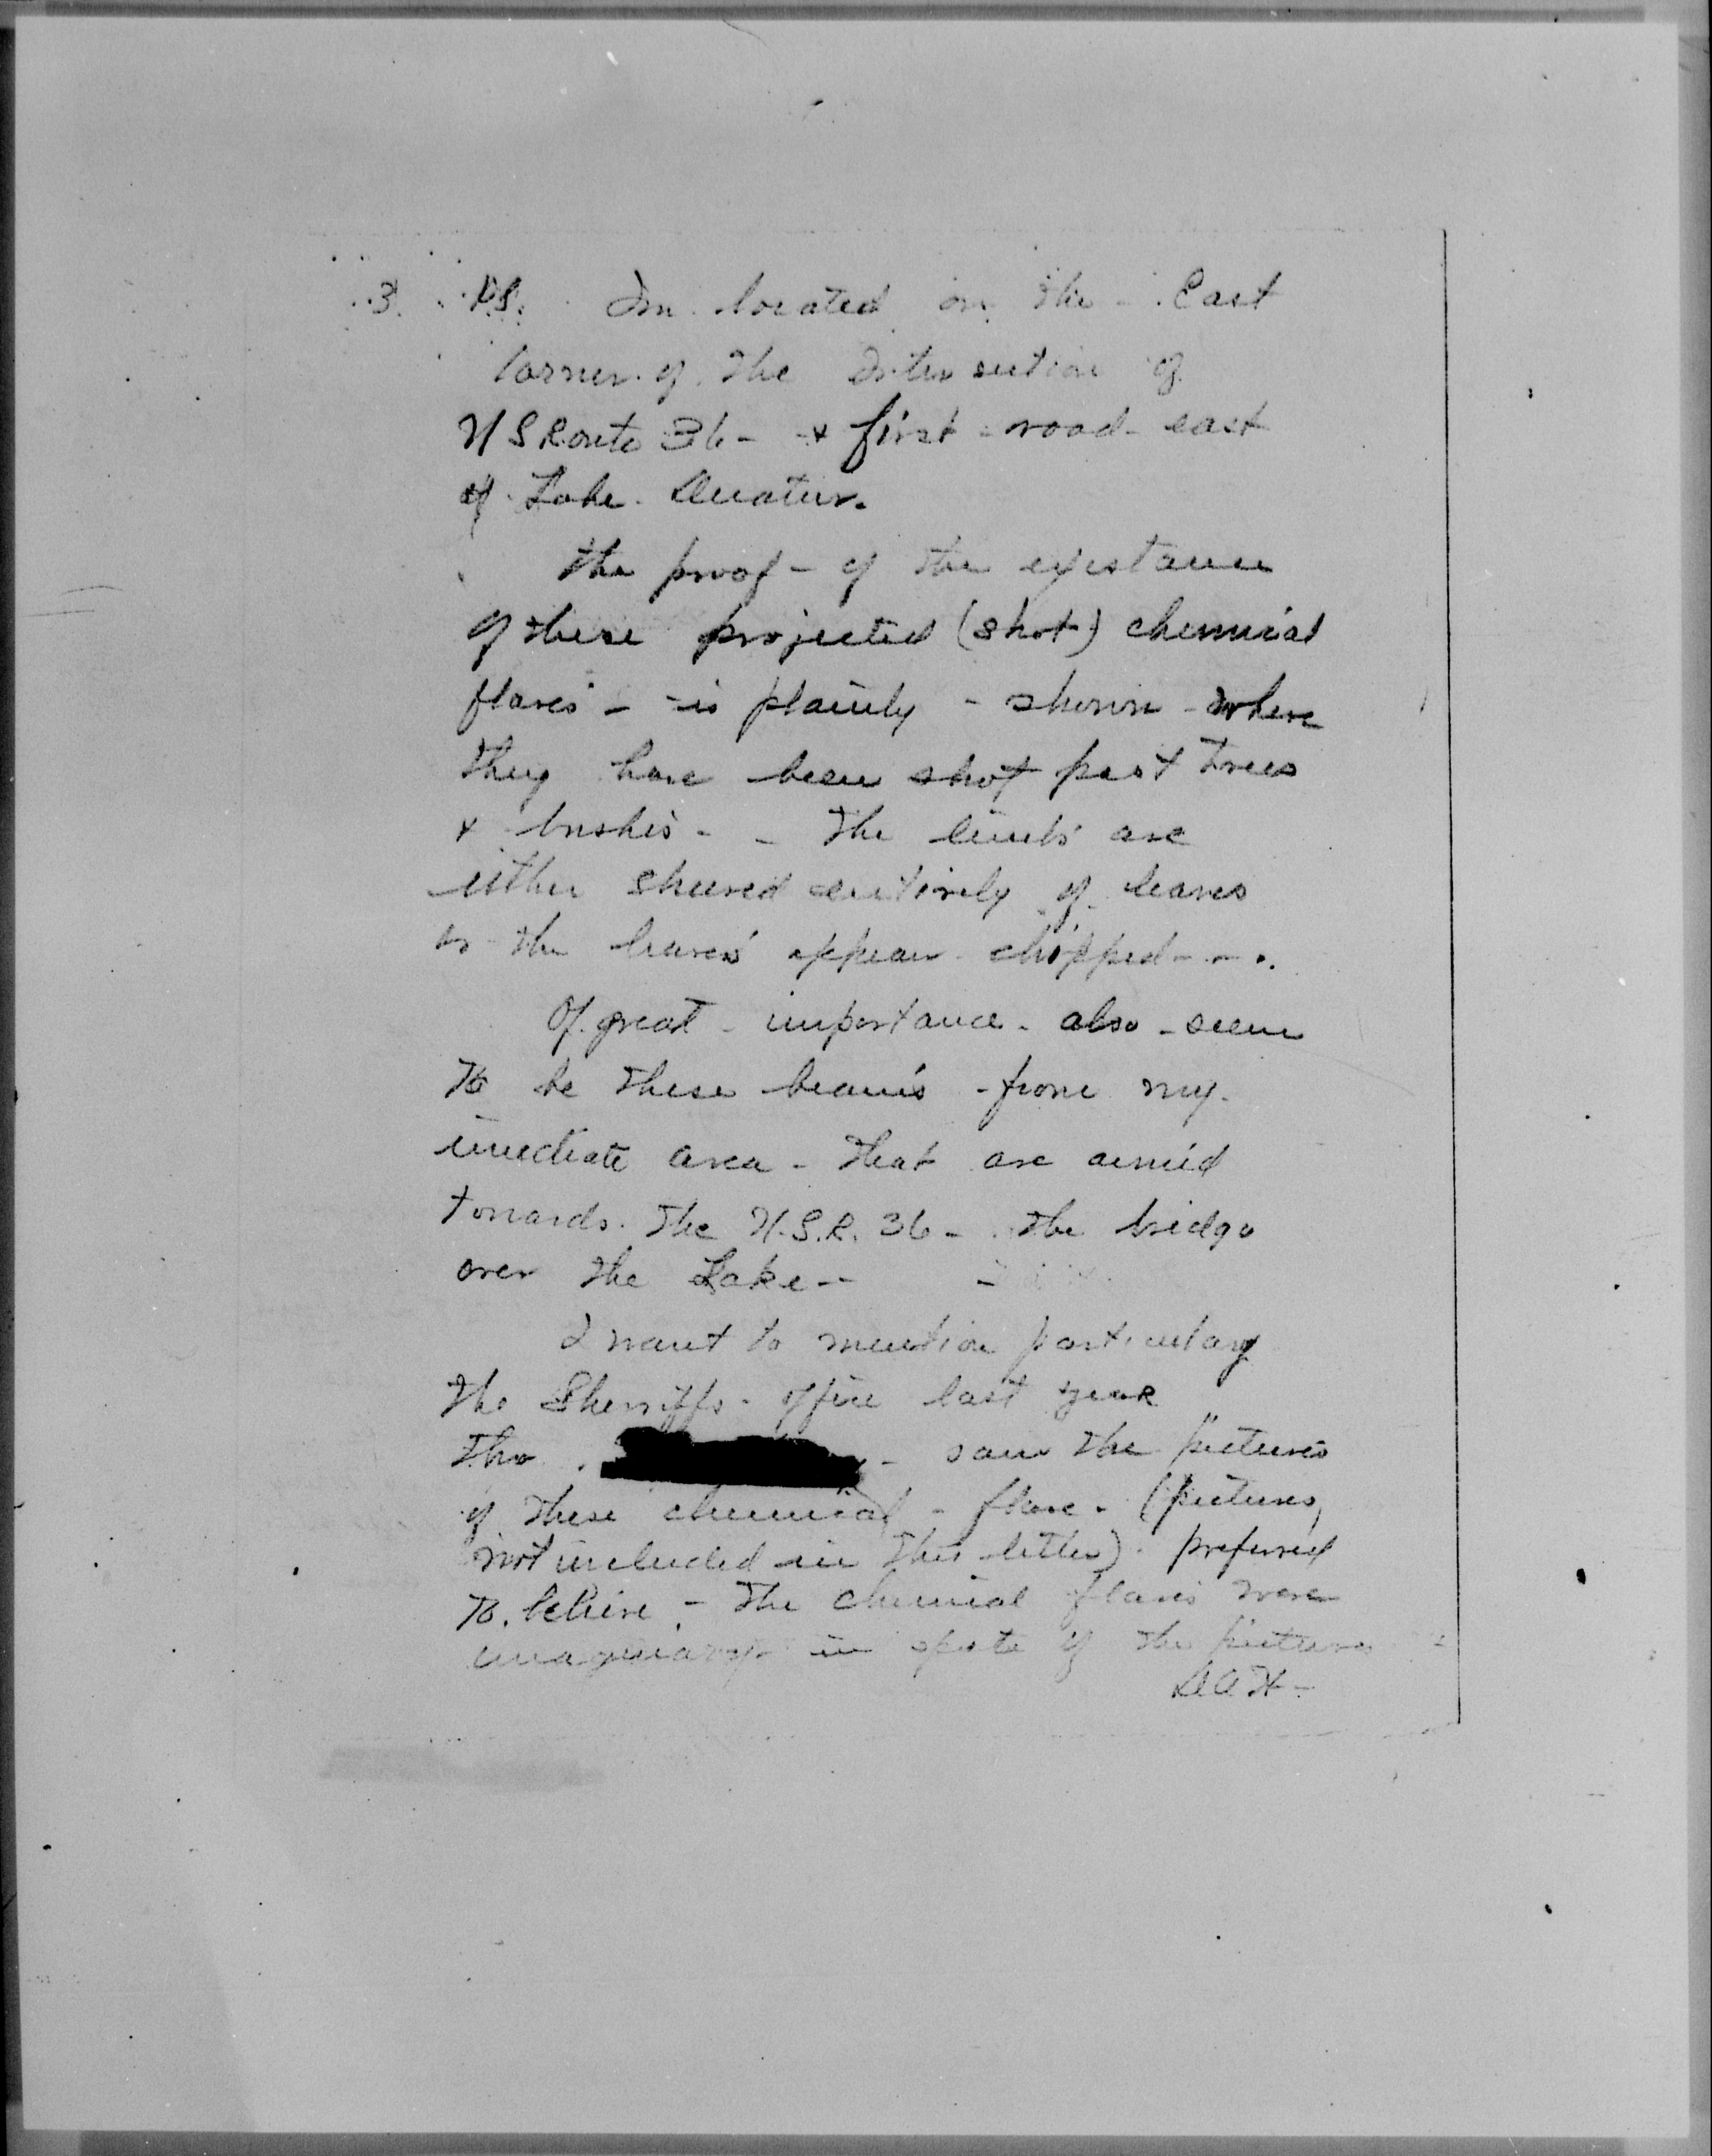 3. P.S. Im located on the - East
corner of the Intersection of
US Route 36 - + first - road - east
of Lake Decatur.
the proof - of the existance
of these projected (shot) chemical
flares - - is plainly - shown - where
they have been shot past trees
+ bushes - - the limbs are
either sheared entirely of leaves
or the leaves appear chopped - - .
Of great - importance - also - seem
to be these beams - from my
imediate area - that are aimed
towards the U.S.R. 36 - the bridge
over the Lake - - -
I want to mention particulary
the Sherriffs - office last year
tho - saw the pictures
of these chemical - flare - (pictures,
not included in this letter) - preferred
to believe - the chemical flares were
imaginary in spite of the pictures
DAH -